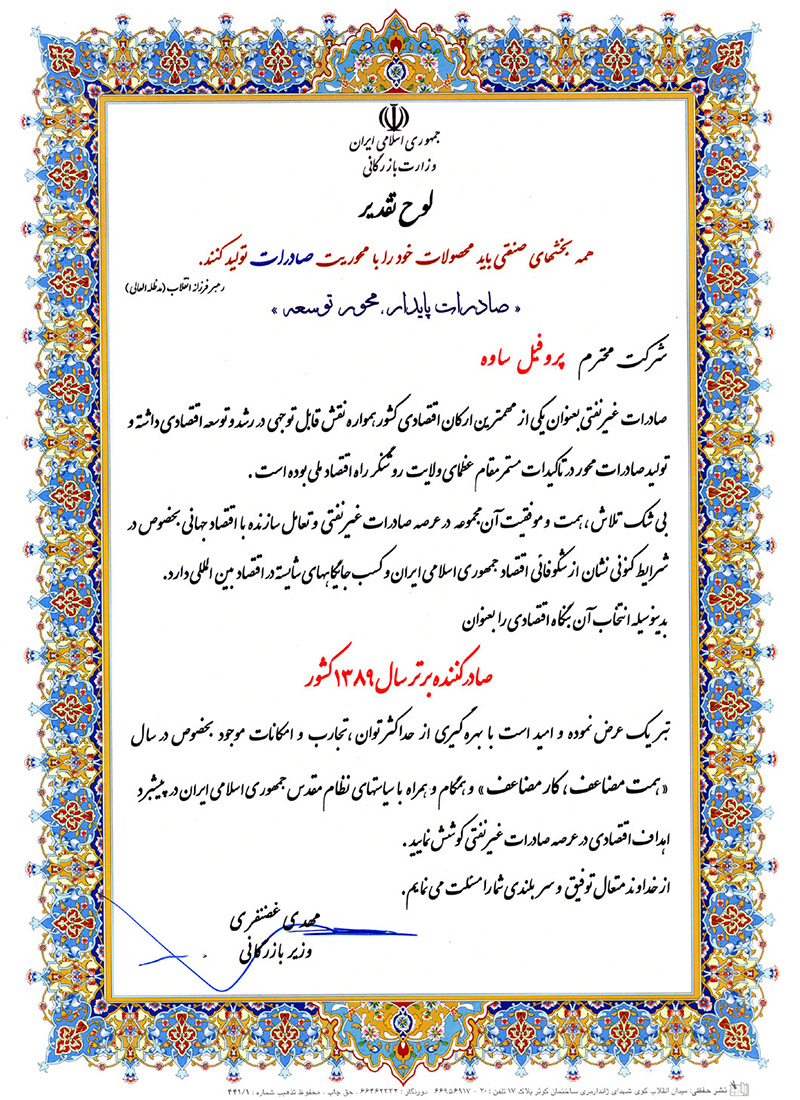 جمهوری اسلامی ایران
وزارت بازرگانی
لوح تقدیر
همه بخشهای صنعتی باید محصولات خود را با محوریت صادرات تولید کنند.
رهبر فرزانه انقلاب (مدظله العالی)
« صادرات پایدار، محور توسعه »
شرکت محترم پروفیل ساوه
صادرات غیرنفتی بعنوان یکی از مهمترین ارکان اقتصادی کشور همواره نقش قابل توجهی در رشد و توسعه اقتصادی داشته و
تولید صادرات محور در تاکیدات مستمر مقام عظمای ولایت روشنگر راه اقتصاد ملی بوده است .
بی شک تلاش ، همت و موفقیت آن مجموعه در عرصه صادرات غیرنفتی و تعامل سازنده با اقتصاد جهانی بخصوص در
شرایط کنونی نشان از شکوفائی اقتصاد جمهوری اسلامی ایران و کسب جایگاههای شایسته در اقتصاد بین المللی دارد.
بدینوسیله انتخاب آن بنگاه اقتصادی را بعنوان
صادرکننده برتر سال ۱۳۸۹ کشور
تبریک عرض نموده و امید است با بهره گیری از حداکثر توان ، تجارب و امکانات موجود بخصوص در سال
«همت مضاعف ، کار مضاعف» و همگام و همراه با سیاستهای نظام مقدس جمهوری اسلامی ایران در پیشبرد
اهداف اقتصادی در عرصه صادرات غیرنفتی کوشش نمایید .
از خداوند متعال توفیق و سربلندی شما را مسئلت می نمایم .
مهدی غضنفری
وزیر بازرگانی
نشر حقفی: میدان انقلاب کوی شهدای ژاندارمری ساختمان کوثر پلاک ۱۷ تلفن : ۲۰ - ۶۶۹۵۶۹۱۷ دورنگار : ۶۶۴۶۲۲۳۳ . حق چاپ . محفوظ تذهیب شماره : ۴۴۱/۱